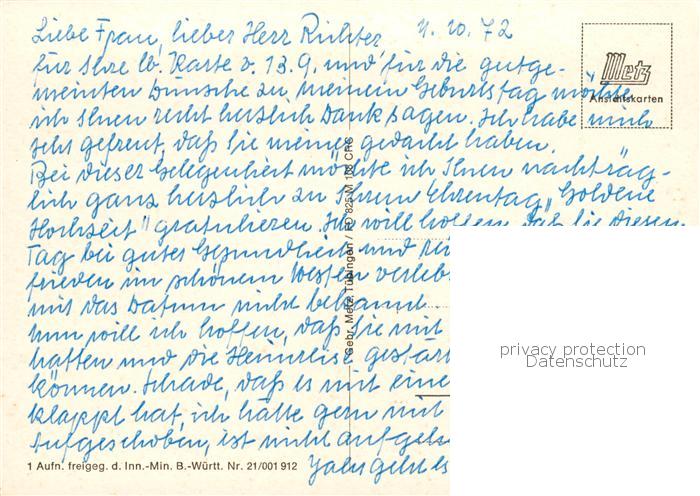 4. 10. 72
Liebe Frau, lieber Herr Richter,
für Ihre lb. Karte v. 13.9. und für die gutge-
meinten Wünsche zu meinem Geburtstag möchte
ich Ihnen recht herzlich Dank sagen. Ich habe mich
sehr gefreut, daß Sie meiner gedacht haben.
Bei dieser Gelegenheit möchte ich Ihnen nachträg-
lich ganz herzlich zu Ihrem Ehrentag „Goldene
Hochzeit" gratulieren. Ich will hoffen, daß Sie diesen
Tag bei guter Gesundheit und
frieden im schönem Westen
mir das Datum nicht bekannt
Nun will ich hoffen, daß Sie mit
hatten und die Heimreise
können. Schade, daß es mit
klappt hat, ich hätte gern mit
Aufgeschoben, ist nicht
geht es
Metz
Ansichtskarten
Gebr. Metz, Tübingen
1 Aufn. freigeg. d. Inn.-Min. B.-Württ. Nr. 21/001 912
privacy protection
Datenschutz